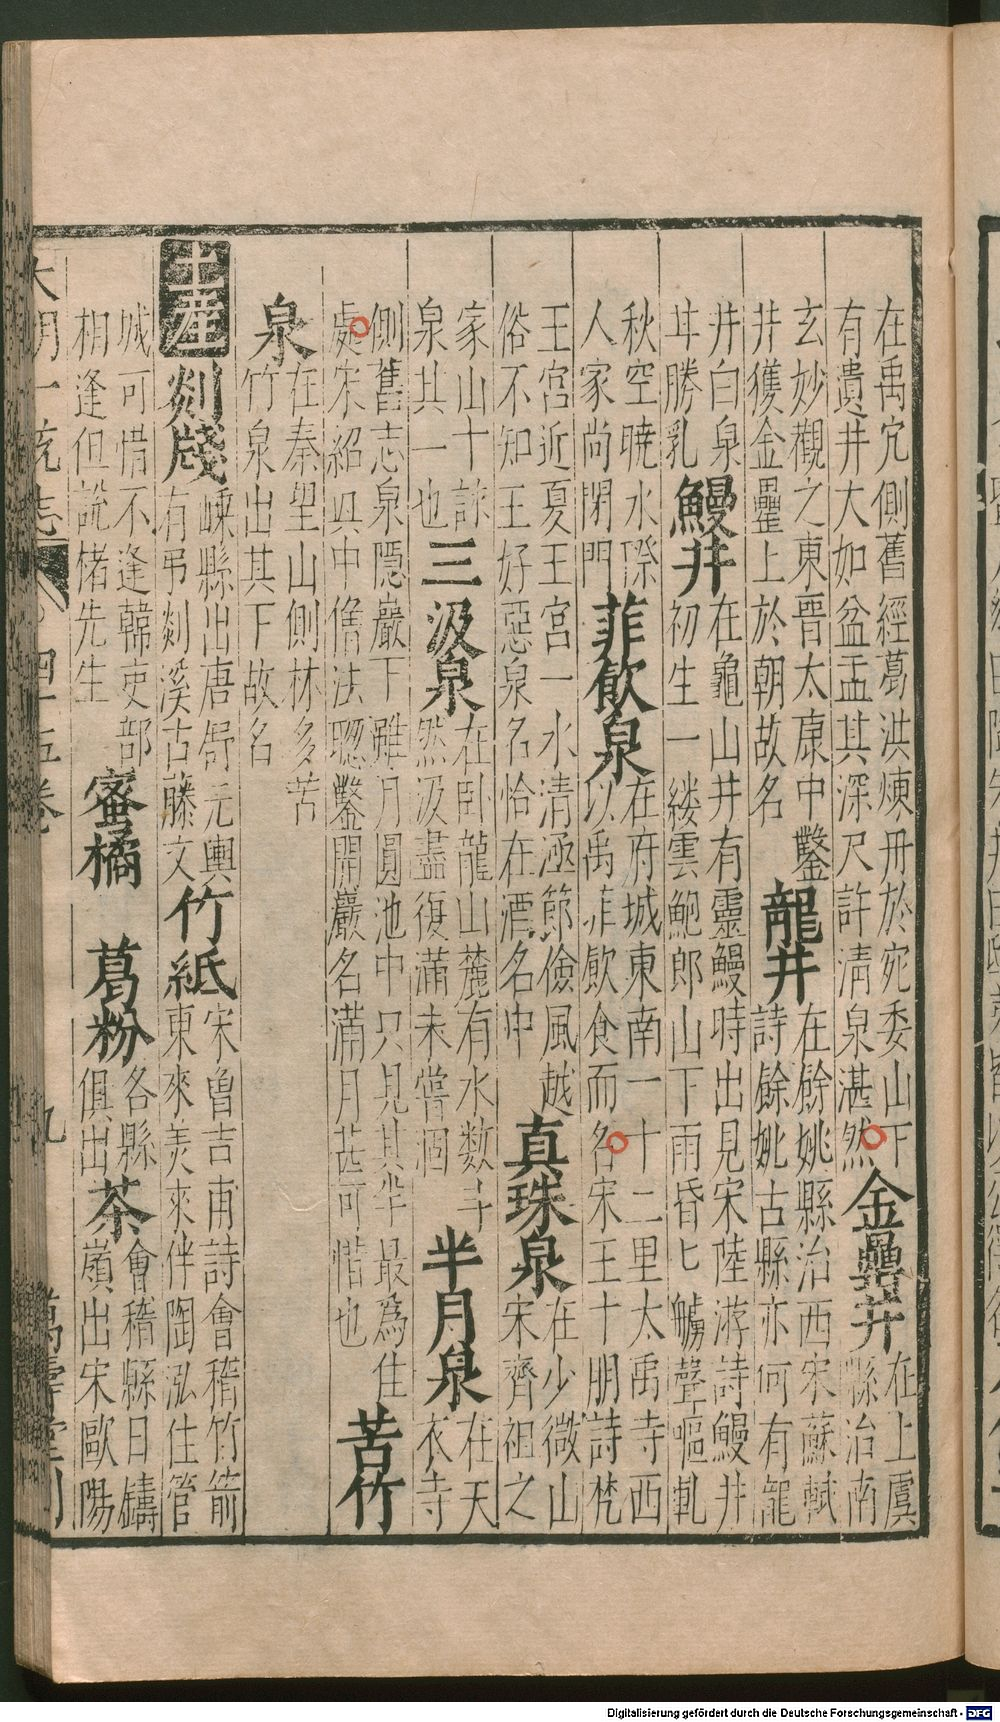 在禹穴側舊經葛洪煉丹於宛委山下
有遺井大如盆盂其深尺許清泉湛然
金罍井
在上虞
縣治南
玄妙觀之東晉太康中鑿
井獲金罍上於朝故名
龍井
在餘姚縣治西宋蘇軾
詩餘姚古縣亦何有龍
井白泉
甘勝乳
鰻井
在龜山井有靈鰻時出見宋陸游詩鰻井
初生一縷雲鮑郎山下雨昏昏艣聲嘔軋
秋空曉水際
人家尚閉門
菲飲泉
在府城東南一十二里太禹寺西
以禹菲飲食而名宋王十朋詩梵
王宮近夏王宮一水清涵節儉風越
俗不知王好惡泉名恰在酒名中
真珠泉
在少微山
宋齊祖之
家山十詠
泉其一也
三汲泉
在卧龍山麓有水數斗
然汲盡復滿未嘗涸
半月泉
在天
衣寺
側舊志泉隱巖下雖月圓池中只見其半最為佳
處宋紹興中僧法聰鑿開巖名滿月甚可惜也
苦竹
泉
在秦望山側林多苦
竹泉出其下故名
土產
剡牋
嵊縣出唐舒元輿
有弔剡溪古藤文
竹紙
宋魯吉甫詩會稽竹箭
東來美來伴陶泓住管
城可惜不逢韓吏部
相逢但說楮先生
蜜橘
葛粉
各縣
俱出
茶
會稽縣日鑄
嶺出宋歐陽
大明一統志
四十五卷
九
萬壽堂刊
Digitalisierung gefördert durch die Deutsche Forschungsgemeinschaft - DFG